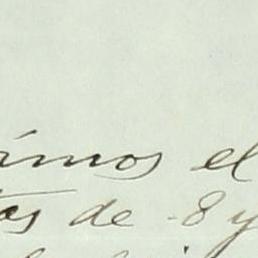 ámos el
tos de 8 y